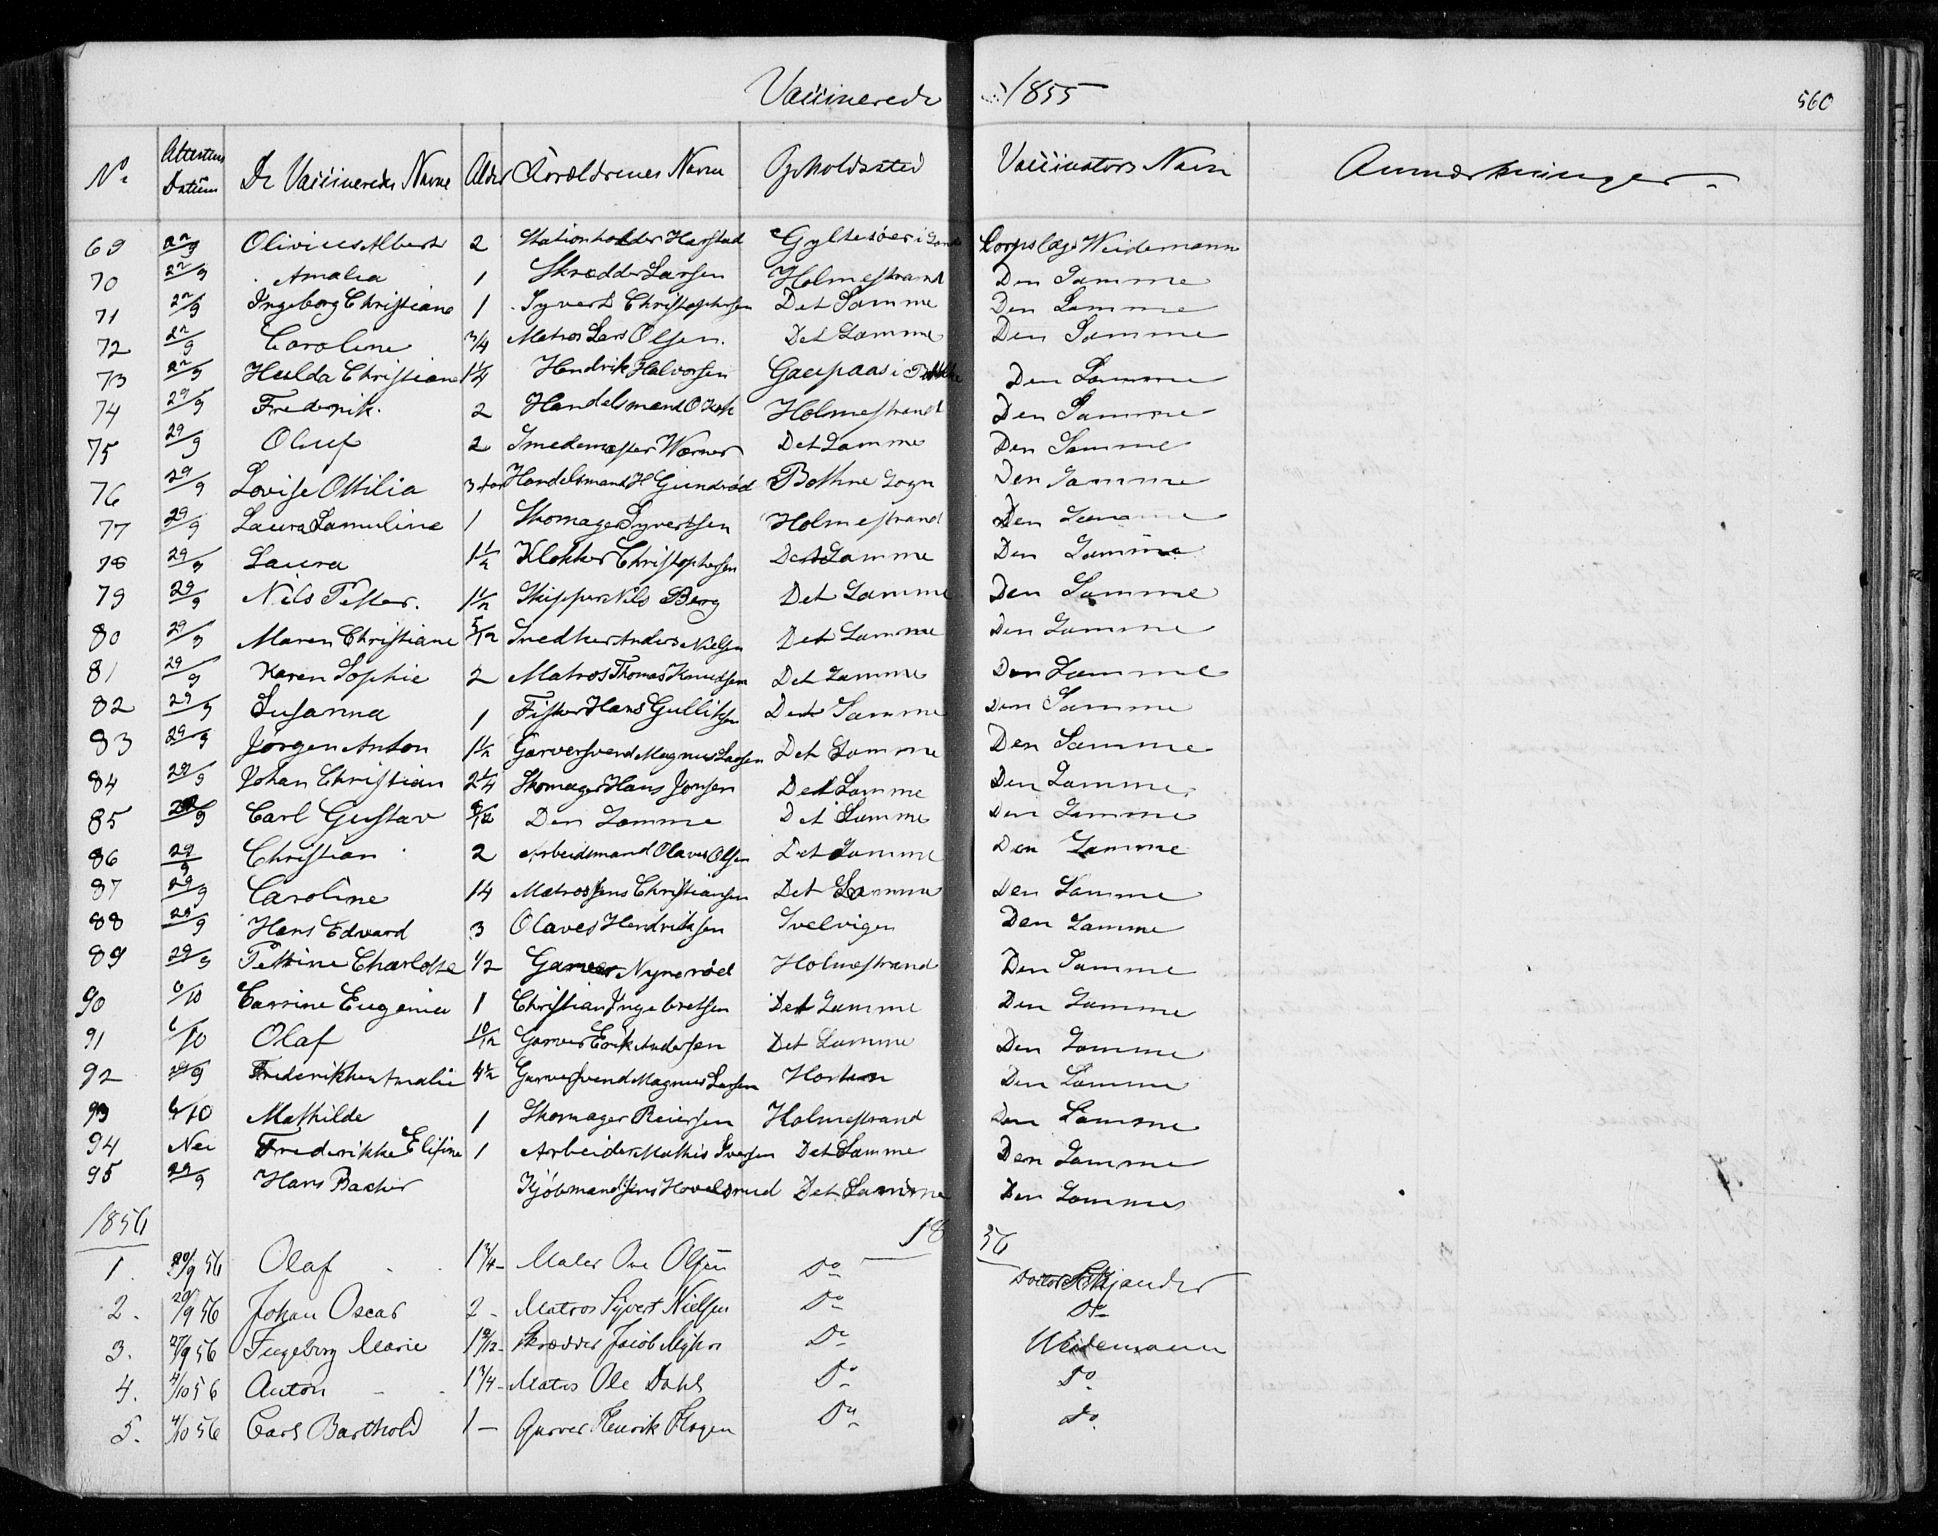 Vaccinerede 1855 560
No. Attestens Datum De Vaccineredes Navne Alder Forældrenes Navne Opholdssted Vaccinators Navn Anmærkninger.
69 22/9 Olivius Albert 2 Stationholder Harstad Gyltesöer i Sande Corpslæge Weidemann
70 22/9 Amalia 1 Skrædder Larsen Holmestrand Den Samme
71 22/9 Ingeborg Christiane 1 Syvert Christophersen Det Samme Den Samme
72 22/9 Caroline 3/4 Matros Lars Olsen. Det Samme Den Samme
73 22/9 Hulda Christiane 1 1/4 Hendrik Halvorsen Gaupaas i Den Samme
74 29/9 Frederik. 2 Handelsmand Holmestrand Den Samme
75 29/9 Oluf 2 Smedemester Wærner Det Samme Den Samme
76 29/9 Lovise Ottilia 3 Handelsmand H Gundröd Bothne Sogn Den Samme
77 29/9 Laura Samuline 1 Skomager Syvertsen Holmestrand Den Samme
78 29/9 Laura 1 1/2 Klokker Christophersen Det Samme Den Samme
79 29/9 Nils Petter. 1 1/2 Skipper Nils Berg Det Samme Den Samme
80 29/9 Maren Christiane 5/12 Snedker Anders Nielsen Det Samme Den Samme
81 29/9 Karen Sophie 2 Matros Thomas Knudsen Det Samme Den Samme
82 29/9 Susanna 1 Fisker Hans Gulliksen Det Samme Den Samme
83 29/9 Jörgen Anton 1 1/2 Garversvend Magnus Larsen Det Samme Den Samme
84 29/9 Johan Christian 2 1/4 Skomager Hans Jensen Det Samme Den Samme
85 29/9 Carl Gustav /12 Den Samme Det Samme Den Samme
86 29/9 Christian 2 Arbeidsmand Olaves Olsen Det Samme Den Samme
87 29/9 Caroline 14 Matros Jens Christiansen Det Samme Den Samme
88 29/9 Hans Edvard 3 Olaves Hendriksen Svelvigen Den Samme
89 29/9 Pettrine Charlotte 1/2 Garver Nyneröd Holmestrand Den Samme
90 6/10 Carrine Eugenia 1 Christian Ingebretsen Det Samme Den Samme
91 6/10 Olaf 10/12 Garver Erik Andersen Det Samme Den Samme
92 29/9 Frederikke Amalie 4 1/2 Garversvend Magnus Larsen Horten Den Samme
93 6/10 Mathilde 1 Skomager Reiersen Holmestrand Den Samme
94 Nei Frederikke Elisine 1 Arbeider Mathis Iversen Det Samme Den Samme
95 29/9 Hans Bacher Kjöbmand Jens Hovelsrud Det Samme Den Samme
1856 1856
1. 20/9 56 Olaf 1 3/4 - Maler Ole Olsen Do Doctor Schjander
2. 20/9 56 Johan Oscar 2 - Matros Syvert Nielsen Do Do
3. 27/9 56 Ingeborg Marie 1 9/12 - Skrædder Jacob Do Weidemann
4. 4/10 56 Anton 1 3/4 - Matros Ole Dahl Do Do
5. 4/10 56 Carl Barthold 1 - Garver Henrik Hagen Do Do